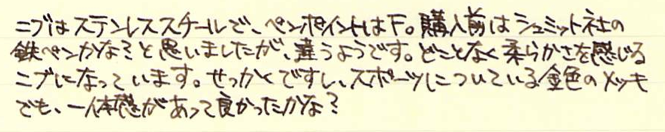 ニブはステンレススチールで、ペンポイントはF。購入前はシュミット社の
鉄ペンかな？と思いましたが、違うようです。どことなく柔らかさを感じる
ニブになっています。せっかくですし、スポーツについている金色のメッキ
でも、一体感があって良かったかな？